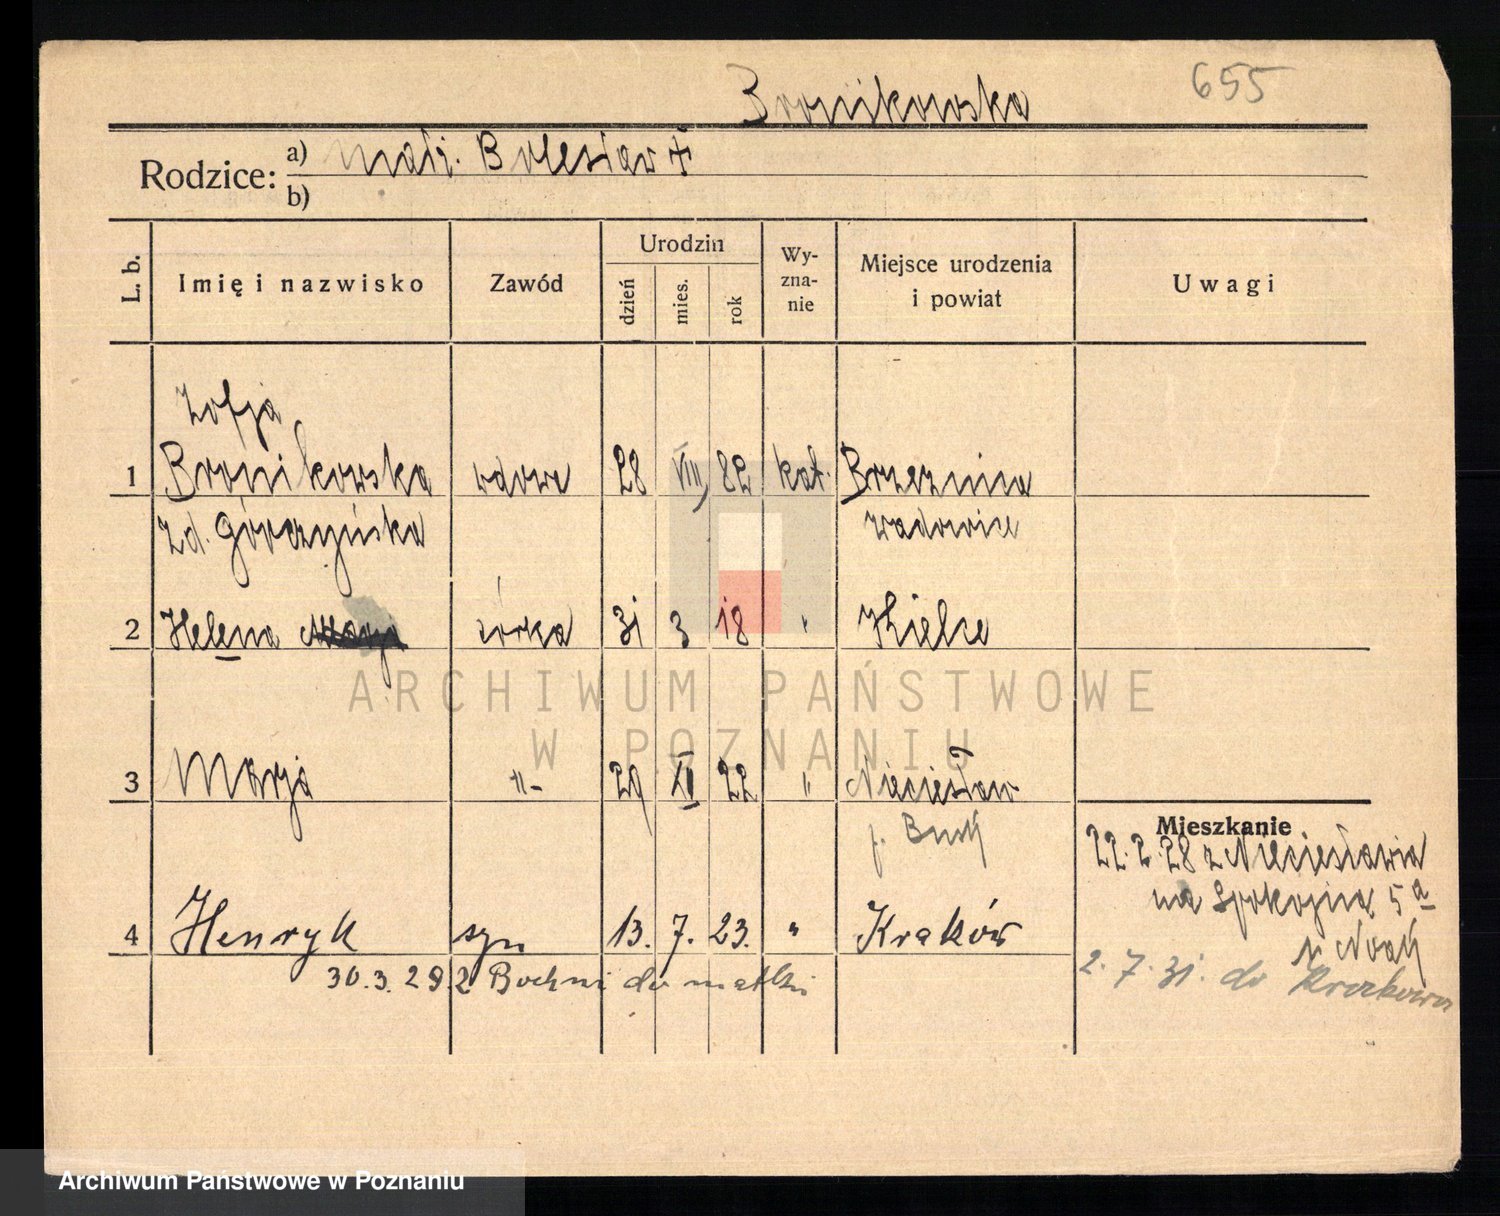 655
Bronikowska
Rodzice: a) małż. Bolesław +
b)
L. b. Imię i nazwisko Zawód Urodzin Wy-zna-nie Miejsce urodzenia i powiat Uwagi
dzień mies. rok
Zofja
1 Bronikowska wdowa 28 VIII 82 kat. Brzeznica
zd. Górczyńska Wadowice
2 Helena córka 31 3 18 " Kielce
3 Marja -"- 29 22 " Nieciesław
p. Busk
Mieszkanie
22. 2. 28 z Nieciesławia
na Spokojną 5a
4 Henryk syn 13. 7. 23. " Kraków
30. 3. 29 z Bochni do matki
2. 7. 31. do Krakowa
ARCHIWUM PAŃSTWOWE
W POZNANIU
Archiwum Państwowe w Poznaniu